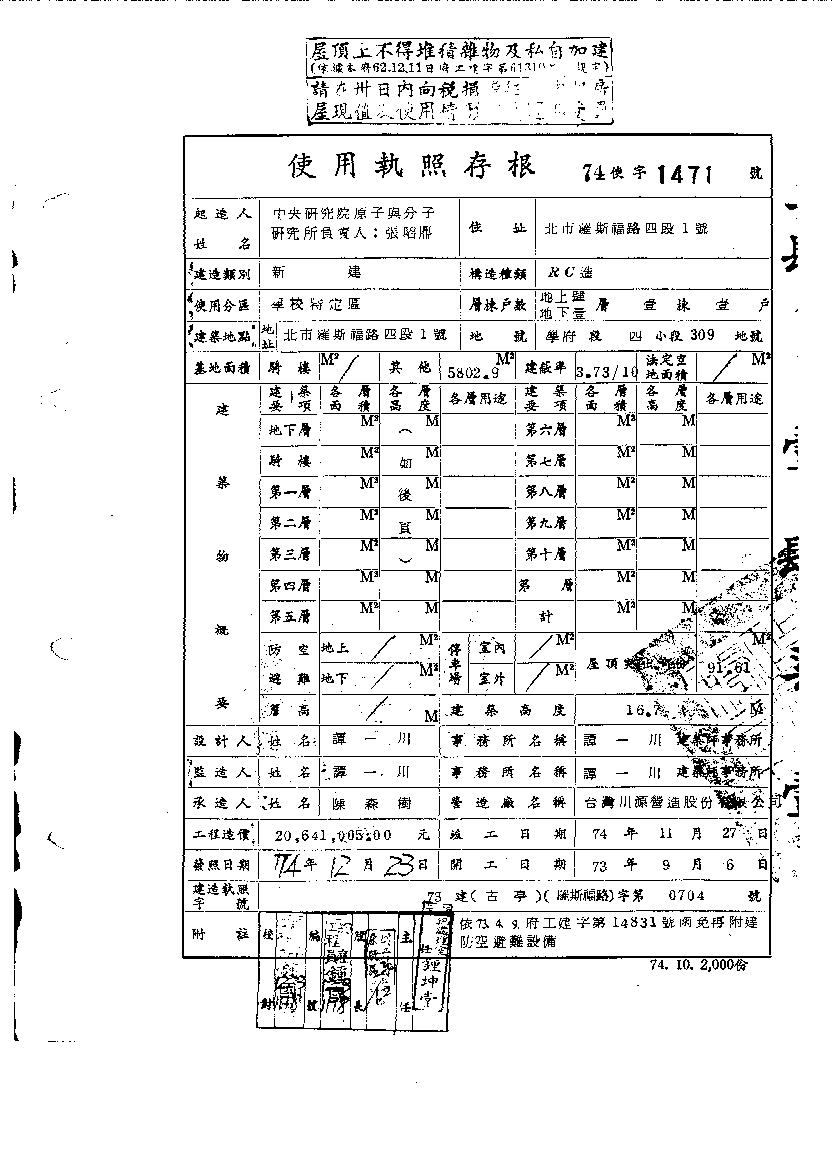 屋頂上不得堆積雜物及私自加建
(依據本府62.12.11日府工項字第61310
請在卅日內向稅捐
屋現值及使用情
使用執照存根 74使字1471號
起造人姓名 中央研究院原子與分子研究所負責人：張昭鼎 住址 北市羅斯福路四段1號
建造類別 新建 構造種類 RC造
使用分區 學校特定區 層棟戶數 地上肆地下壹層壹棟壹戶
建築地點 地址 北市羅斯福路四段1號 地號 學府段四小段309地號
基地面積 騎樓 M² / 其他 5802.9 M² 建蔽率 3.73/10 法定空地面積 / M²
建築物概要 建築要項 各層面積 各層高度 各層用途 建築要項 各層面積 各層高度 各層用途
地下層 M² ( M 第六層 M² M
騎樓 M² 如 M 第七層 M² M
第一層 M² 後 M 第八層 M² M
第二層 M² 頁 M 第九層 M² M
第三層 M² ) M 第十層 M² M
第四層 M² M 第 層 M² M
第五層 M² M 計 M² M
防空避難 地上 / M² 停車場 室內 / M² 屋頂突 91.61 M²
地下 / M² 室外 / M²
簷高 / M 建築高度 16. M
設計人 姓名 譚一川 事務所名稱 譚一川建築師事務所
監造人 姓名 譚一川 事務所名稱 譚一川建築師事務所
承造人 姓名 陳森樹 營造廠名稱 台灣川源營造股份有限公司
工程造價 20,641,005.00元 竣工日期 74年11月27日
發照日期 74年12月23日 開工日期 73年9月6日
建造執照字號 73建(古亭)(羅斯福路)字第0704號
附註 依73.4.9.府工建字第14831號函免再附建
防空避難設備
74.10.2,000份
校對
主任